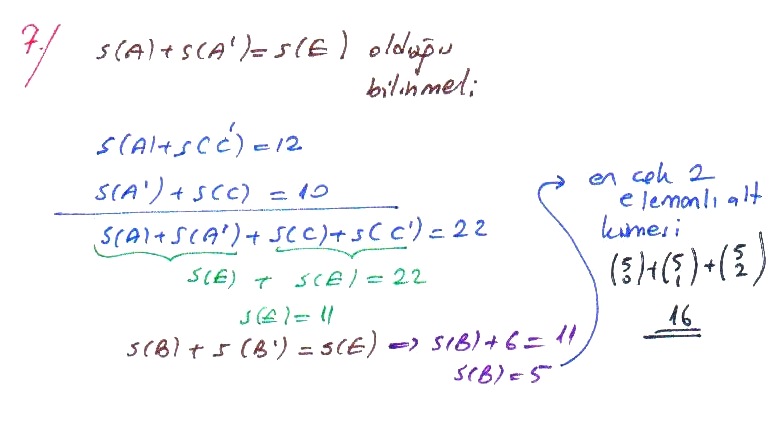 7./ s(A)+s(A')=s(E) olduğu
bilinmeli
s(A)+s(C')=12
s(A')+s(C)=10
s(A)+s(A')+s(C)+s(C')=22
s(E)+s(E)=22
s(E)=11
s(B)+s(B')=s(E) => s(B)+6=11
s(B)=5
en çok 2
elemanlı alt
kümesi
(5 0)+(5 1)+(5 2)
16